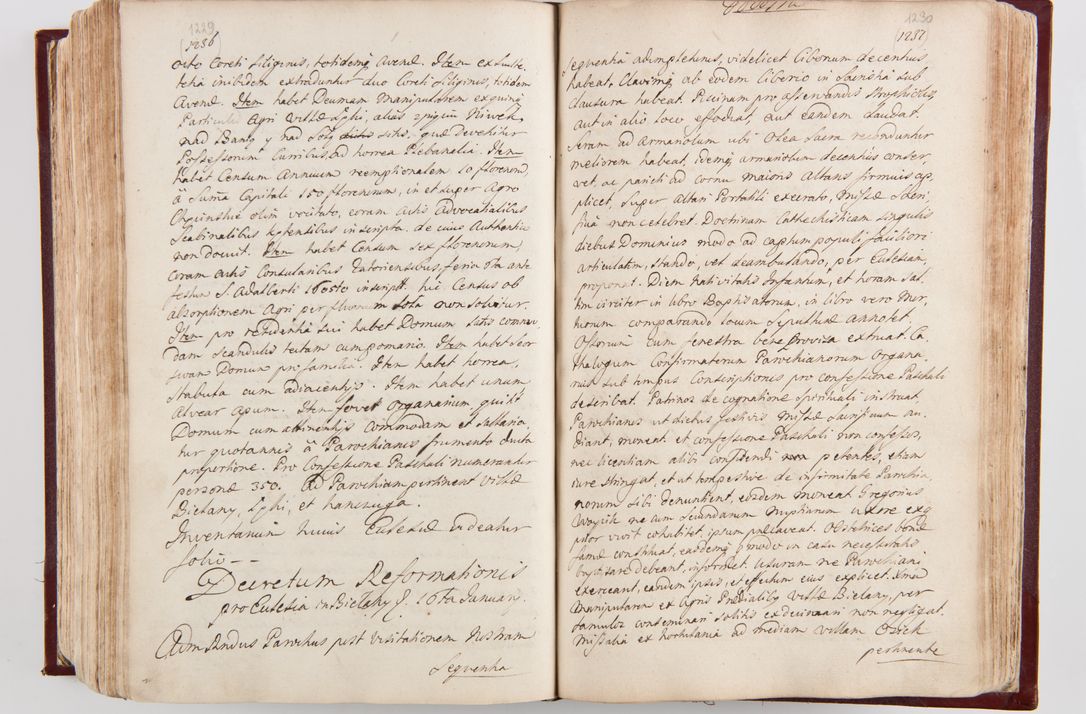 1229
1236
octo Coreti siliginis, totidemq avenæ. Item ex Sulte
cha inibidem extraduntur duo Coreti siliginis, totidem
Avenæ. Item habet Decimam Manipularem ex quinq
Particulis Agri Villæ Łęki, aliàs
nad Bang y nad Solą sitis, quæ devehitur
Possessorum Curribus ad horrea Plebanalia. Item
habet Censum Annuum reemptionalem 10 florenorum
à Suma Capitali 150 florenorum, in et super Agro
olim vocitato, coram Actis Advocatialibus
Scabinalibus Kętensibus inscripto. de cuius Authentico
non docuit. Item habet Censum sex florenorum
Coram Actis Consularibus Zatoriensibus, feria 6ta ante
festum S. Adalberti inscript. hic Census ob
absorptionem Agri per fluvium Sola non solvitur.
Item pro residentia sui habet Domum satis commo
dam Scandulis tectam cum pomario. Item habet Seor
sivam Domum pro familia. Item habet horrea,
Stabula cum adiacentijs. Item habet unum
Alvear apum. Item fovet Organarium, qui kt
Domum cum attinentijs commodam et Sallaria
tur quotannis à Parochianis frumento ducta
proportione. Pro Confessione Paschali numerantur
personæ 350. Ad Parochiam pertinent Villæ
Bielany, Łęki, et Nanczuga.
Inventarium huius Ecclesiæ videatur
folio --
Decretum Reformationis
pro Ecclesia in Bielany J. 10ta Januarij.
Adm Rndus Parochus post Visitationem Nostram
Sequentia
1230
1237
Sequentia adimpleturus, videlicet Ciborium decentius
habeat, Clavimq ab eodem Ciborio in Sacristia sub
Clausura habeat. Piscinam pro asservandis
aut in alio loco effodiat, aut eandem claudat.
Seram ad Armariolum ubi Olea Sacra reconduntur
meliorem habeat, idemq armariolum decentius conser
vet, ac parieti ad cornu maioris Altaris firmius ap
plicet, super Altari Portatili execrato, Missæ Sacri
ficia non celebret. Doctrinam Cathechisticam singulis
diebus Dominicis modo ad captum populi faciliori
articulatim, stando, vel deambulando, per Ecclesiam,
proponat. Diem nativitatis Infantium, et horam sal
tim circiter in libro Baptisatorum, in libro vero Mor
tuorum comparando locum Sepulturæ annotet.
Ossorium Cum fenestra bene provisa extruat. Ca
thalogum Confirmatorum Parochianorum Organa
rius sub tempus Conscriptionis pro confessione Paschali
describat. Patrinos de cognatione spirituali instruat,
Parochianos ut diebus festivis Missæ Sacrificium au
diant, moneat. et confessione Paschali non confessos,
nec licentiam alibi confitendi petentes, etiam
iure stringat, et ut tempestive de infirmitate Parochia
norum sibi denuntient, eosdem moneat Gregorius
Woycik ne cum Secundarum Nuptiarum uxore
vivit cohabitet. ipsum præcaveat. Obstetrices bonæ
famæ constituat, easdemq quomodo in casu necessitatis
baptizare debeant, informet. Usuram ne Parochiani
exerceant, eandem ipsis, et effectum eius explicet.
Manipularem ex Agris Prædialibus Villæ Bielany, per
famulos condeminari solitis ex decimari non negligat.
Missalia ex hortulania ad mediam villam Osiek
pertinente